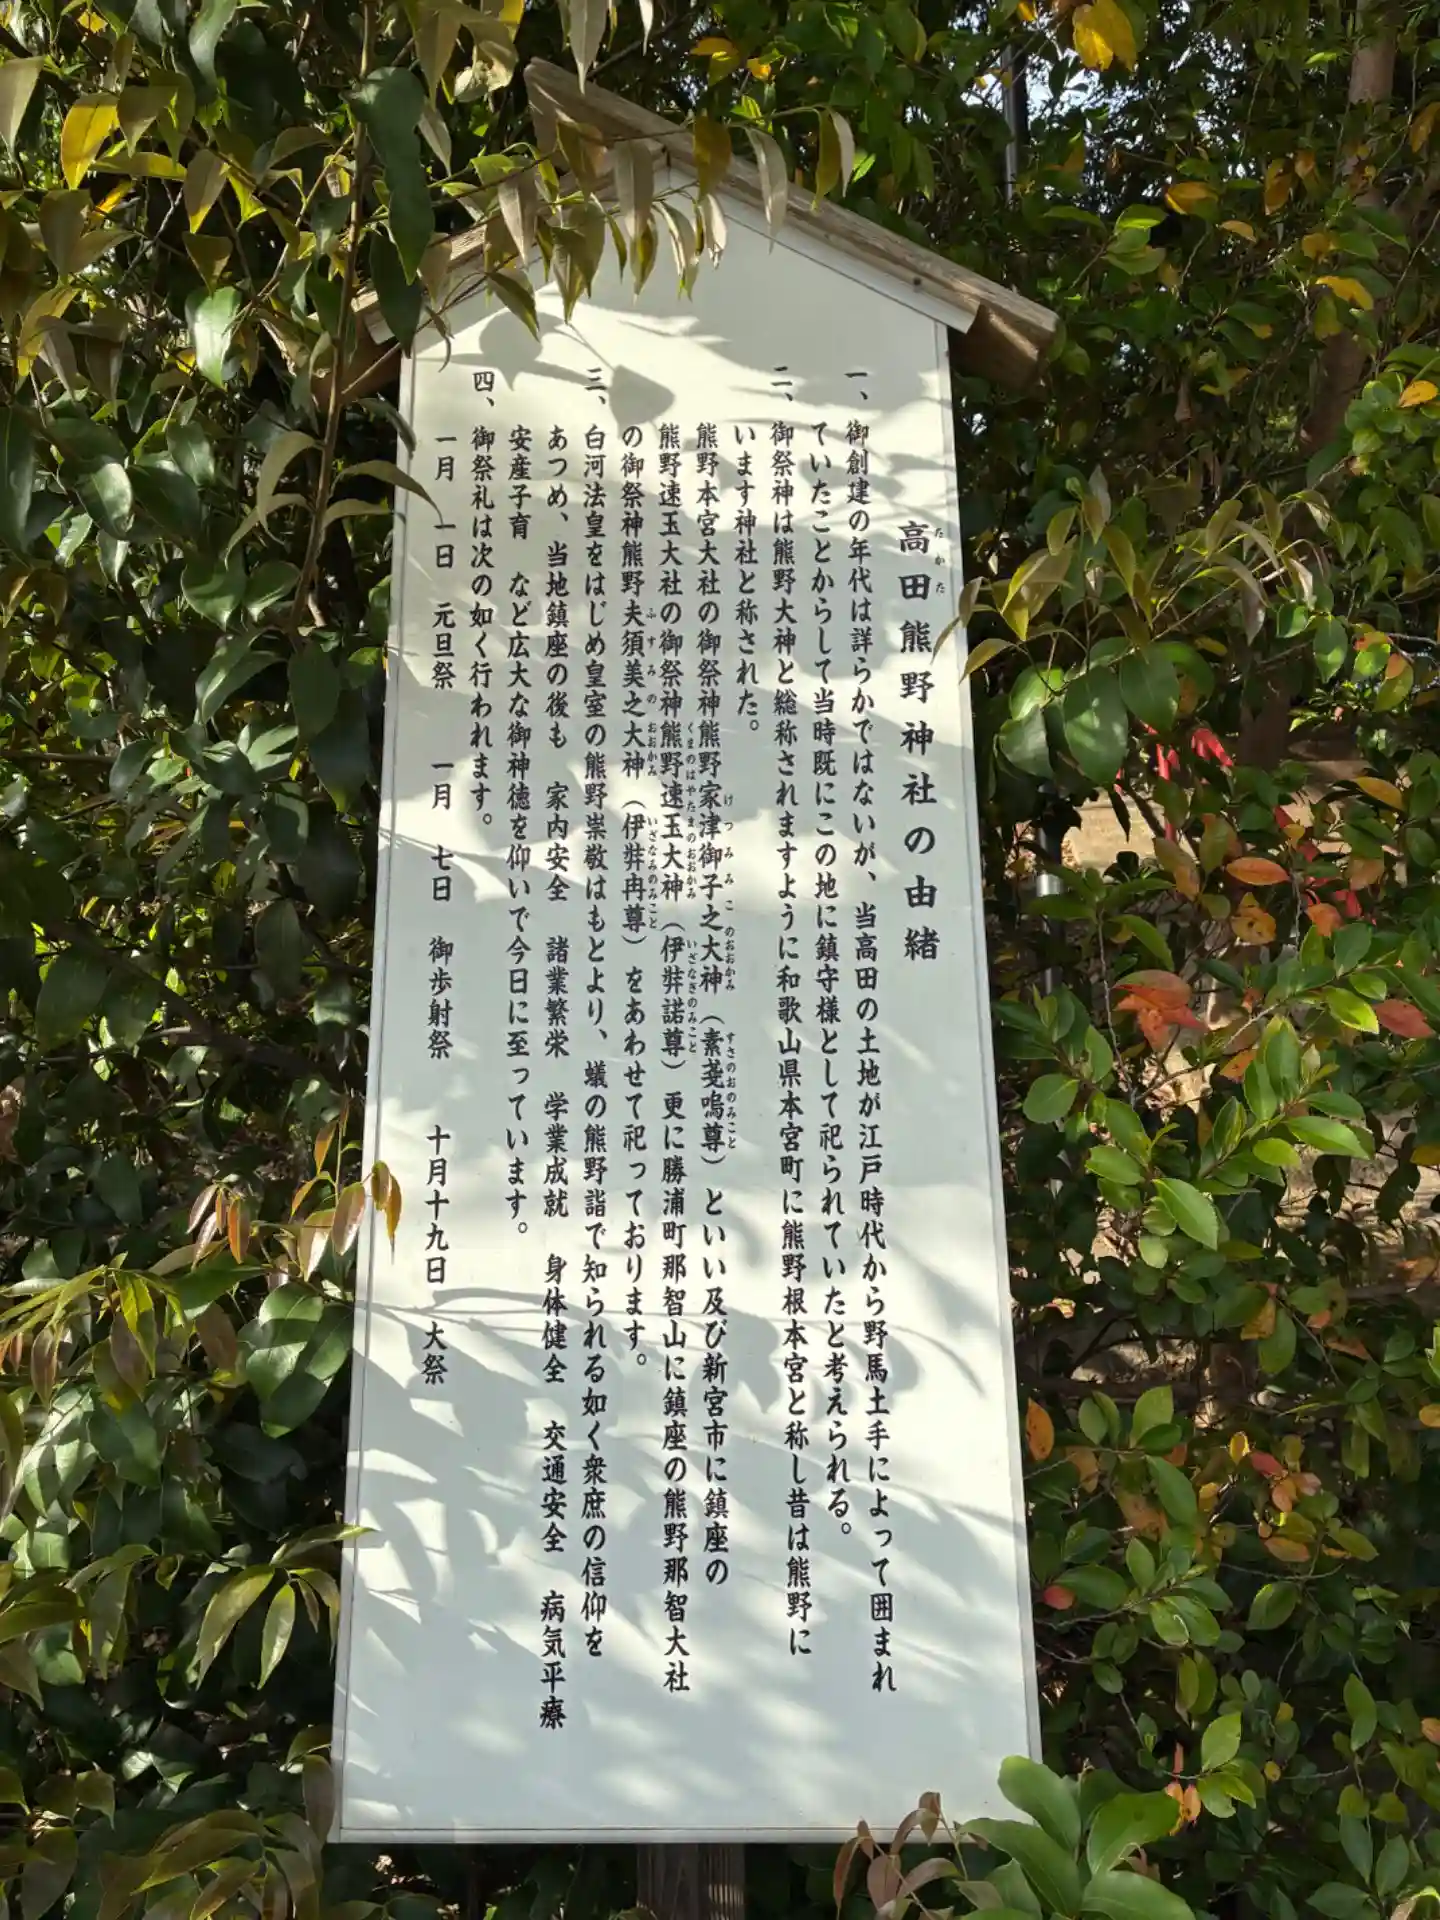 高田熊野神社の由緒
たかた
一、御創建の年代は詳らかではないが、当高田の土地が江戸時代から野馬土手によって囲まれ
ていたことからして当時既にこの地に鎮守様として祀られていたと考えられる。
二、御祭神は熊野大神と総称されますように和歌山県本宮町に熊野根本宮と称し昔は熊野に
います神社と称された。
熊野本宮大社の御祭神熊野家津御子之大神（素戔嗚尊）といい及び新宮市に鎮座の
けつみこのおおかみ すさのおのみこと
熊野速玉大社の御祭神熊野速玉大神（伊弉諾尊）更に勝浦町那智山に鎮座の熊野那智大社
くまのはやたまのおおかみ いざなぎのみこと
の御祭神熊野夫須美之大神（伊弉冉尊）をあわせて祀っております。
ふすみのおおかみ いざなみのみこと
三、白河法皇をはじめ皇室の熊野崇敬はもとより、蟻の熊野詣で知られる如く衆庶の信仰を
あつめ、当地鎮座の後も 家内安全 諸業繁栄 学業成就 身体健全 交通安全 病気平療
安産子育 など広大な御神徳を仰いで今日に至っています。
四、御祭礼は次の如く行われます。
一月 一日 元旦祭 一月 七日 御歩射祭 十月十九日 大祭